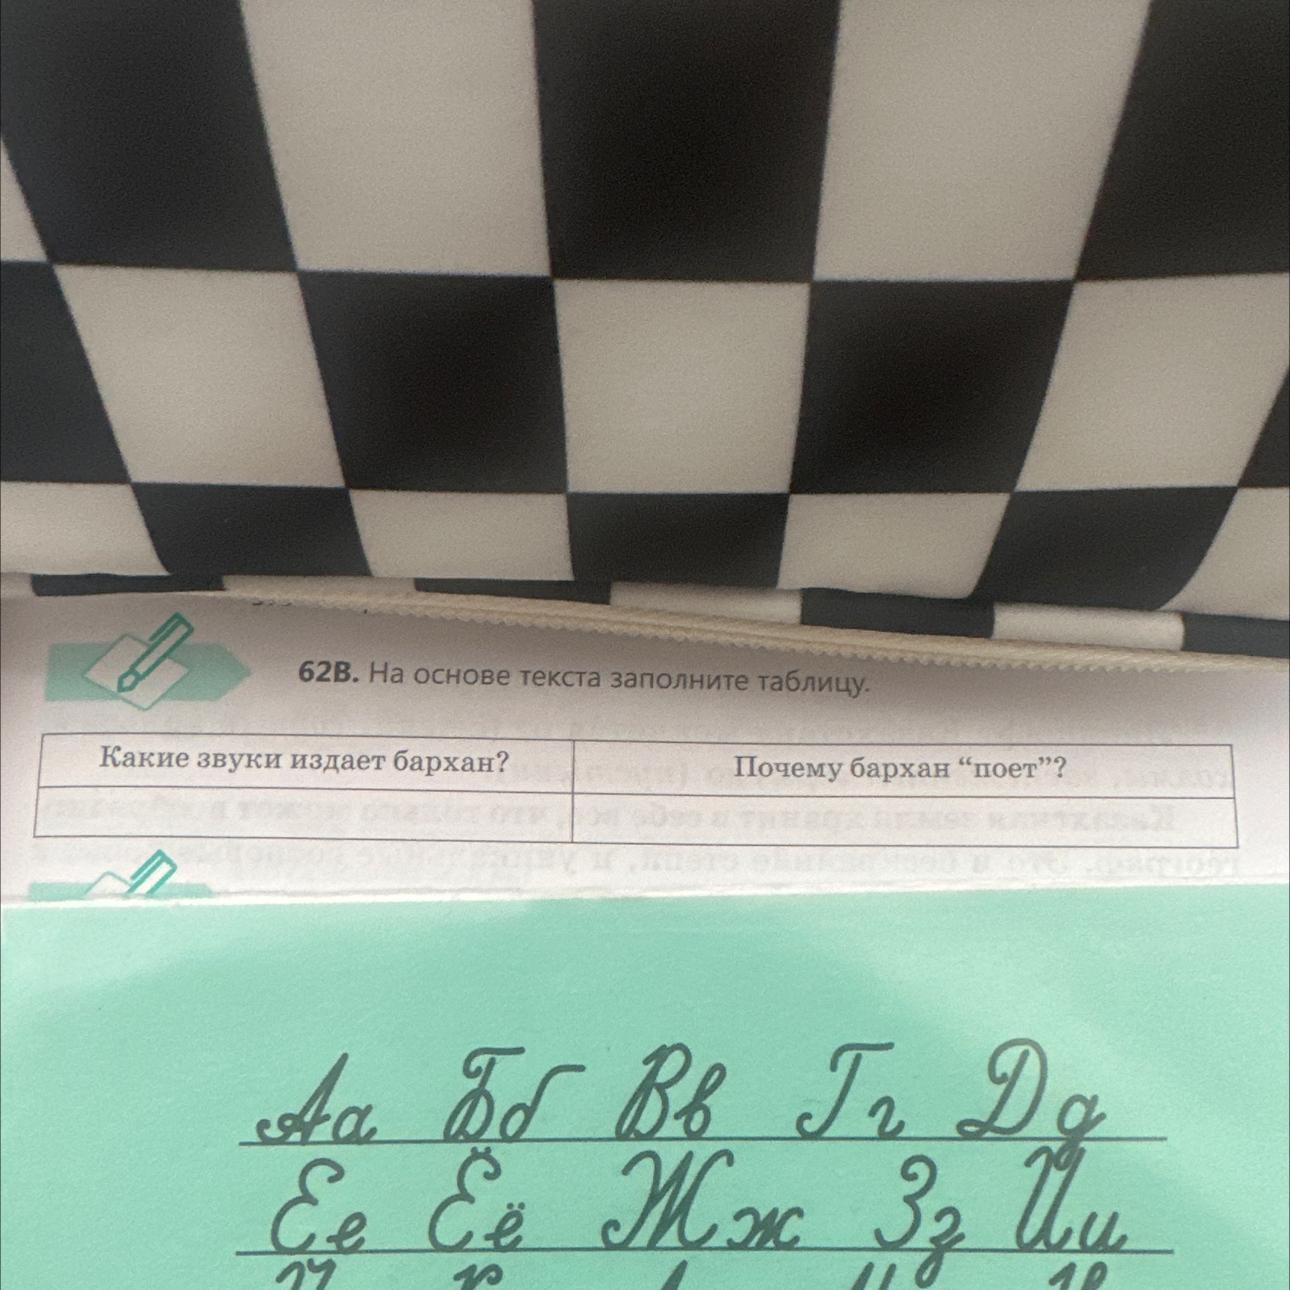 62В. На основе текста заполните таблицу.
Какие звуки издает бархан?
Почему бархан “поет”?
Аа Бб Вв Гг Дд
Ее Ёё Жж Зз Ии